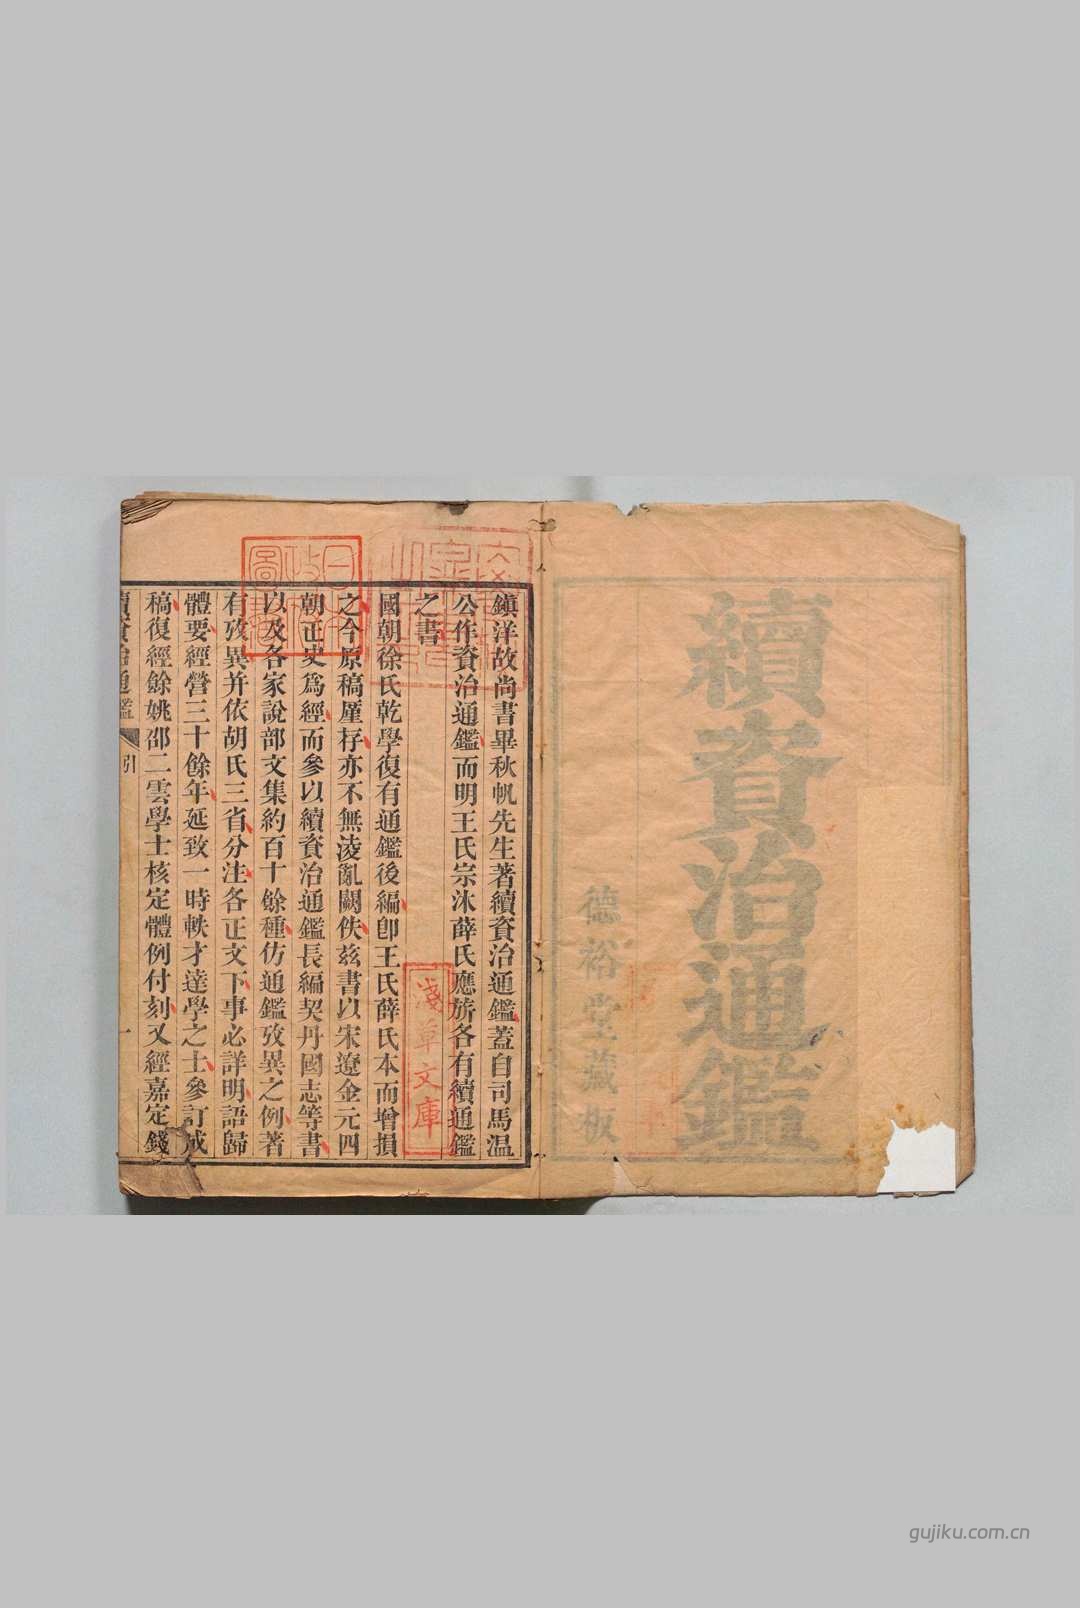 續資治通鑑
德裕堂藏板
鎮洋故尚書畢秋帆先生著續資治通鑑蓋自司馬温
公作資治通鑑而明王氏宗沐薛氏應旂各有續通鑑
之書
國朝徐氏乾學復有通鑑後編卽王氏薛氏本而增損
之今原稿厪存亦不無淩亂闕佚兹書以宋遼金元四
朝正史爲經而參以續資治通鑑長編契丹國志等書
以及各家說部文集約百十餘種仿通鑑攷異之例著
有攷異并依胡氏三省分注各正文下事必詳明語歸
體要經營三十餘年延致一時軼才達學之士參訂成
稿復經餘姚邵二雲學士核定體例付刻又經嘉定錢
續資治通鑑
引
一
淺草文庫
日本政府圖書
gujiku.com.cn